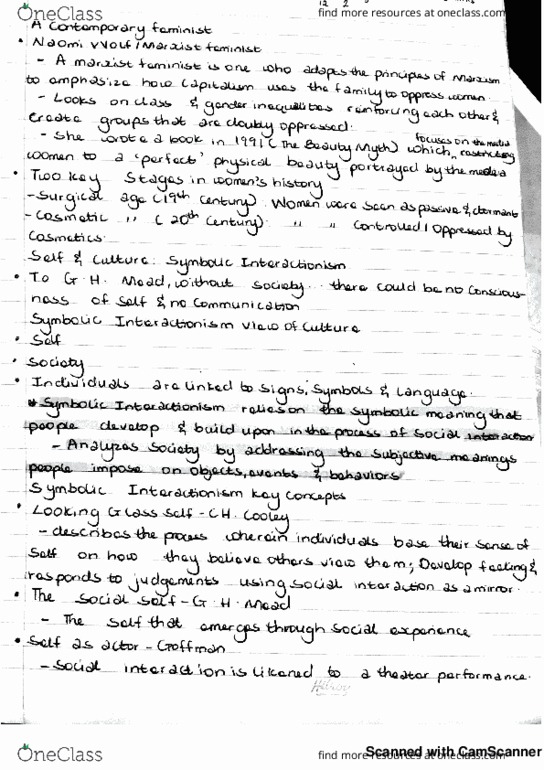 OneClass
find more resources at oneclass.com
A Contemporary feminist
• Naomi Wolf / Marxist feminist
- A marxist feminist is one who adapts the principles of Marxism
to emphasize how Capitalism uses the family to oppress women.
- Looks on class & gender inequalities reinforcing each other &
create groups that are doubly oppressed.
- She wrote a book in 1991 (The Beauty Myth) which focuses on the media restricting
women to a 'perfect' physical beauty portrayed by the media
• Two Key Stages in women's history
- Surgical age (19th Century). Women were seen as passive & dormant
- Cosmetic " (20th Century). " " Controlled / oppressed by
Cosmetics.
Self & Culture: Symbolic Interactionism
• To G. H. Mead, without society.. there could be no Conscious-
ness of Self & no Communication
Symbolic Interactionism view of Culture
• Self
• Society
• Individuals are linked to signs, Symbols & Language.
* Symbolic Interactionism relies on the symbolic meaning that
people develop & build upon in the process of social interaction
- Analyzes Society by addressing the subjective meanings
people impose on objects, events & behaviors
Symbolic Interactionism Key Concepts
• Looking Glass Self - C.H. Cooley
- describes the process wherein individuals base their sense of
Self on how they believe others view them; Develop feeling &
responds to judgements using social interaction as a mirror.
• The Social Self - G. H. Mead
- The Self that emerges through Social experience
• Self as actor - Goffman
- Social interaction is likened to a theater performance.
Hilroy
OneClass
find more resources at oneclass.com
Scanned with CamScanner